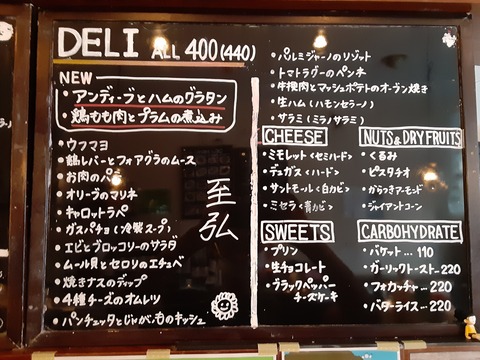 DELI ALL 400(440)
NEW
・アンディーブとハムのグラタン
・鶏もも肉とプラムの煮込み
・ウフマヨ
・鶏レバーとフォアグラのムース
・お肉のパテ
・オリーブのマリネ
・キャロットラペ
・ガスパチョ(冷製スープ)
・エビとブロッコリーのサラダ
・ムール貝とセロリのエチュベ
・焼きナスのディップ
・4種チーズのオムレツ
・パンチェッタとじゃがいものキッシュ
至弘
・パルミジャーノのリゾット
・トマトラグーのペンネ
・牛挽肉とマッシュポテトのオーブン焼き
・生ハム(ハモンセラーノ)
・サラミ(ミラノサラミ)
CHEESE
・ミモレット<セミハード>
・デュガス<ハード>
・サントモール<白カビ>
・ミセラ<青カビ>
NUTS&DRY FRUITS
・くるみ
・ピスタチオ
・からつきアーモンド
・ジャイアントコーン
SWEETS
・プリン
・生チョコレート
・ブラックペッパーチーズケーキ
CARBOHYDRATE
・バケット…110
・ガーリックトースト…220
・フォカッチャ…220
・バターライス…220